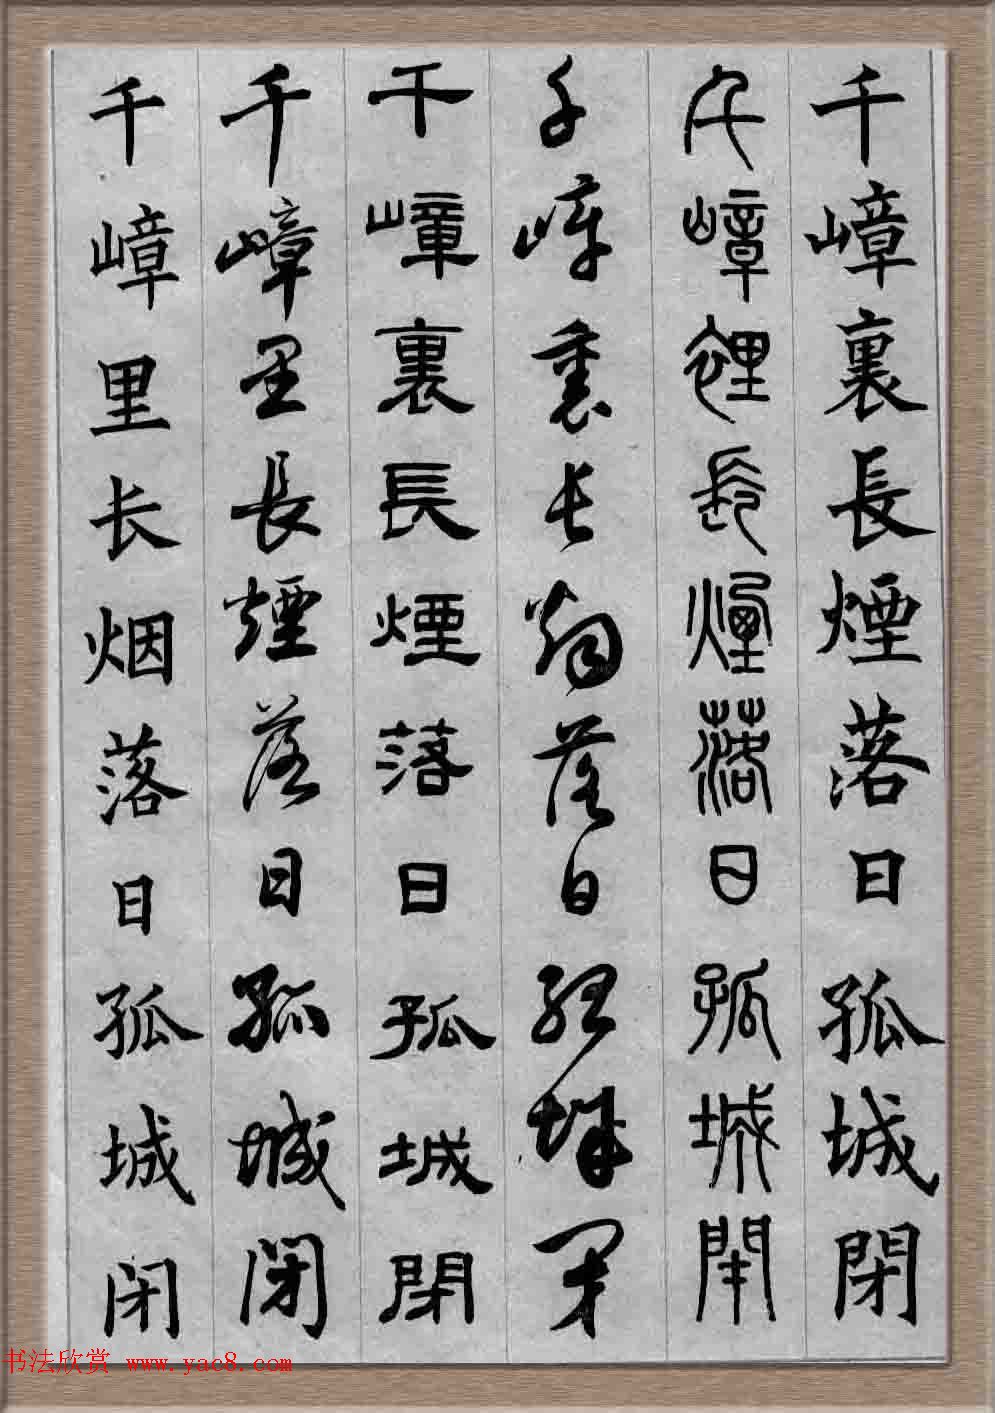 千嶂裏長煙落日孤城閉
千嶂裡長煙落日孤城閉
千嶂裏長烟落日孤城閉
千嶂裏長煙落日孤城閉
千嶂里長煙落日孤城闭
千嶂里长烟落日孤城闭
书法欣赏 www.yac8.com